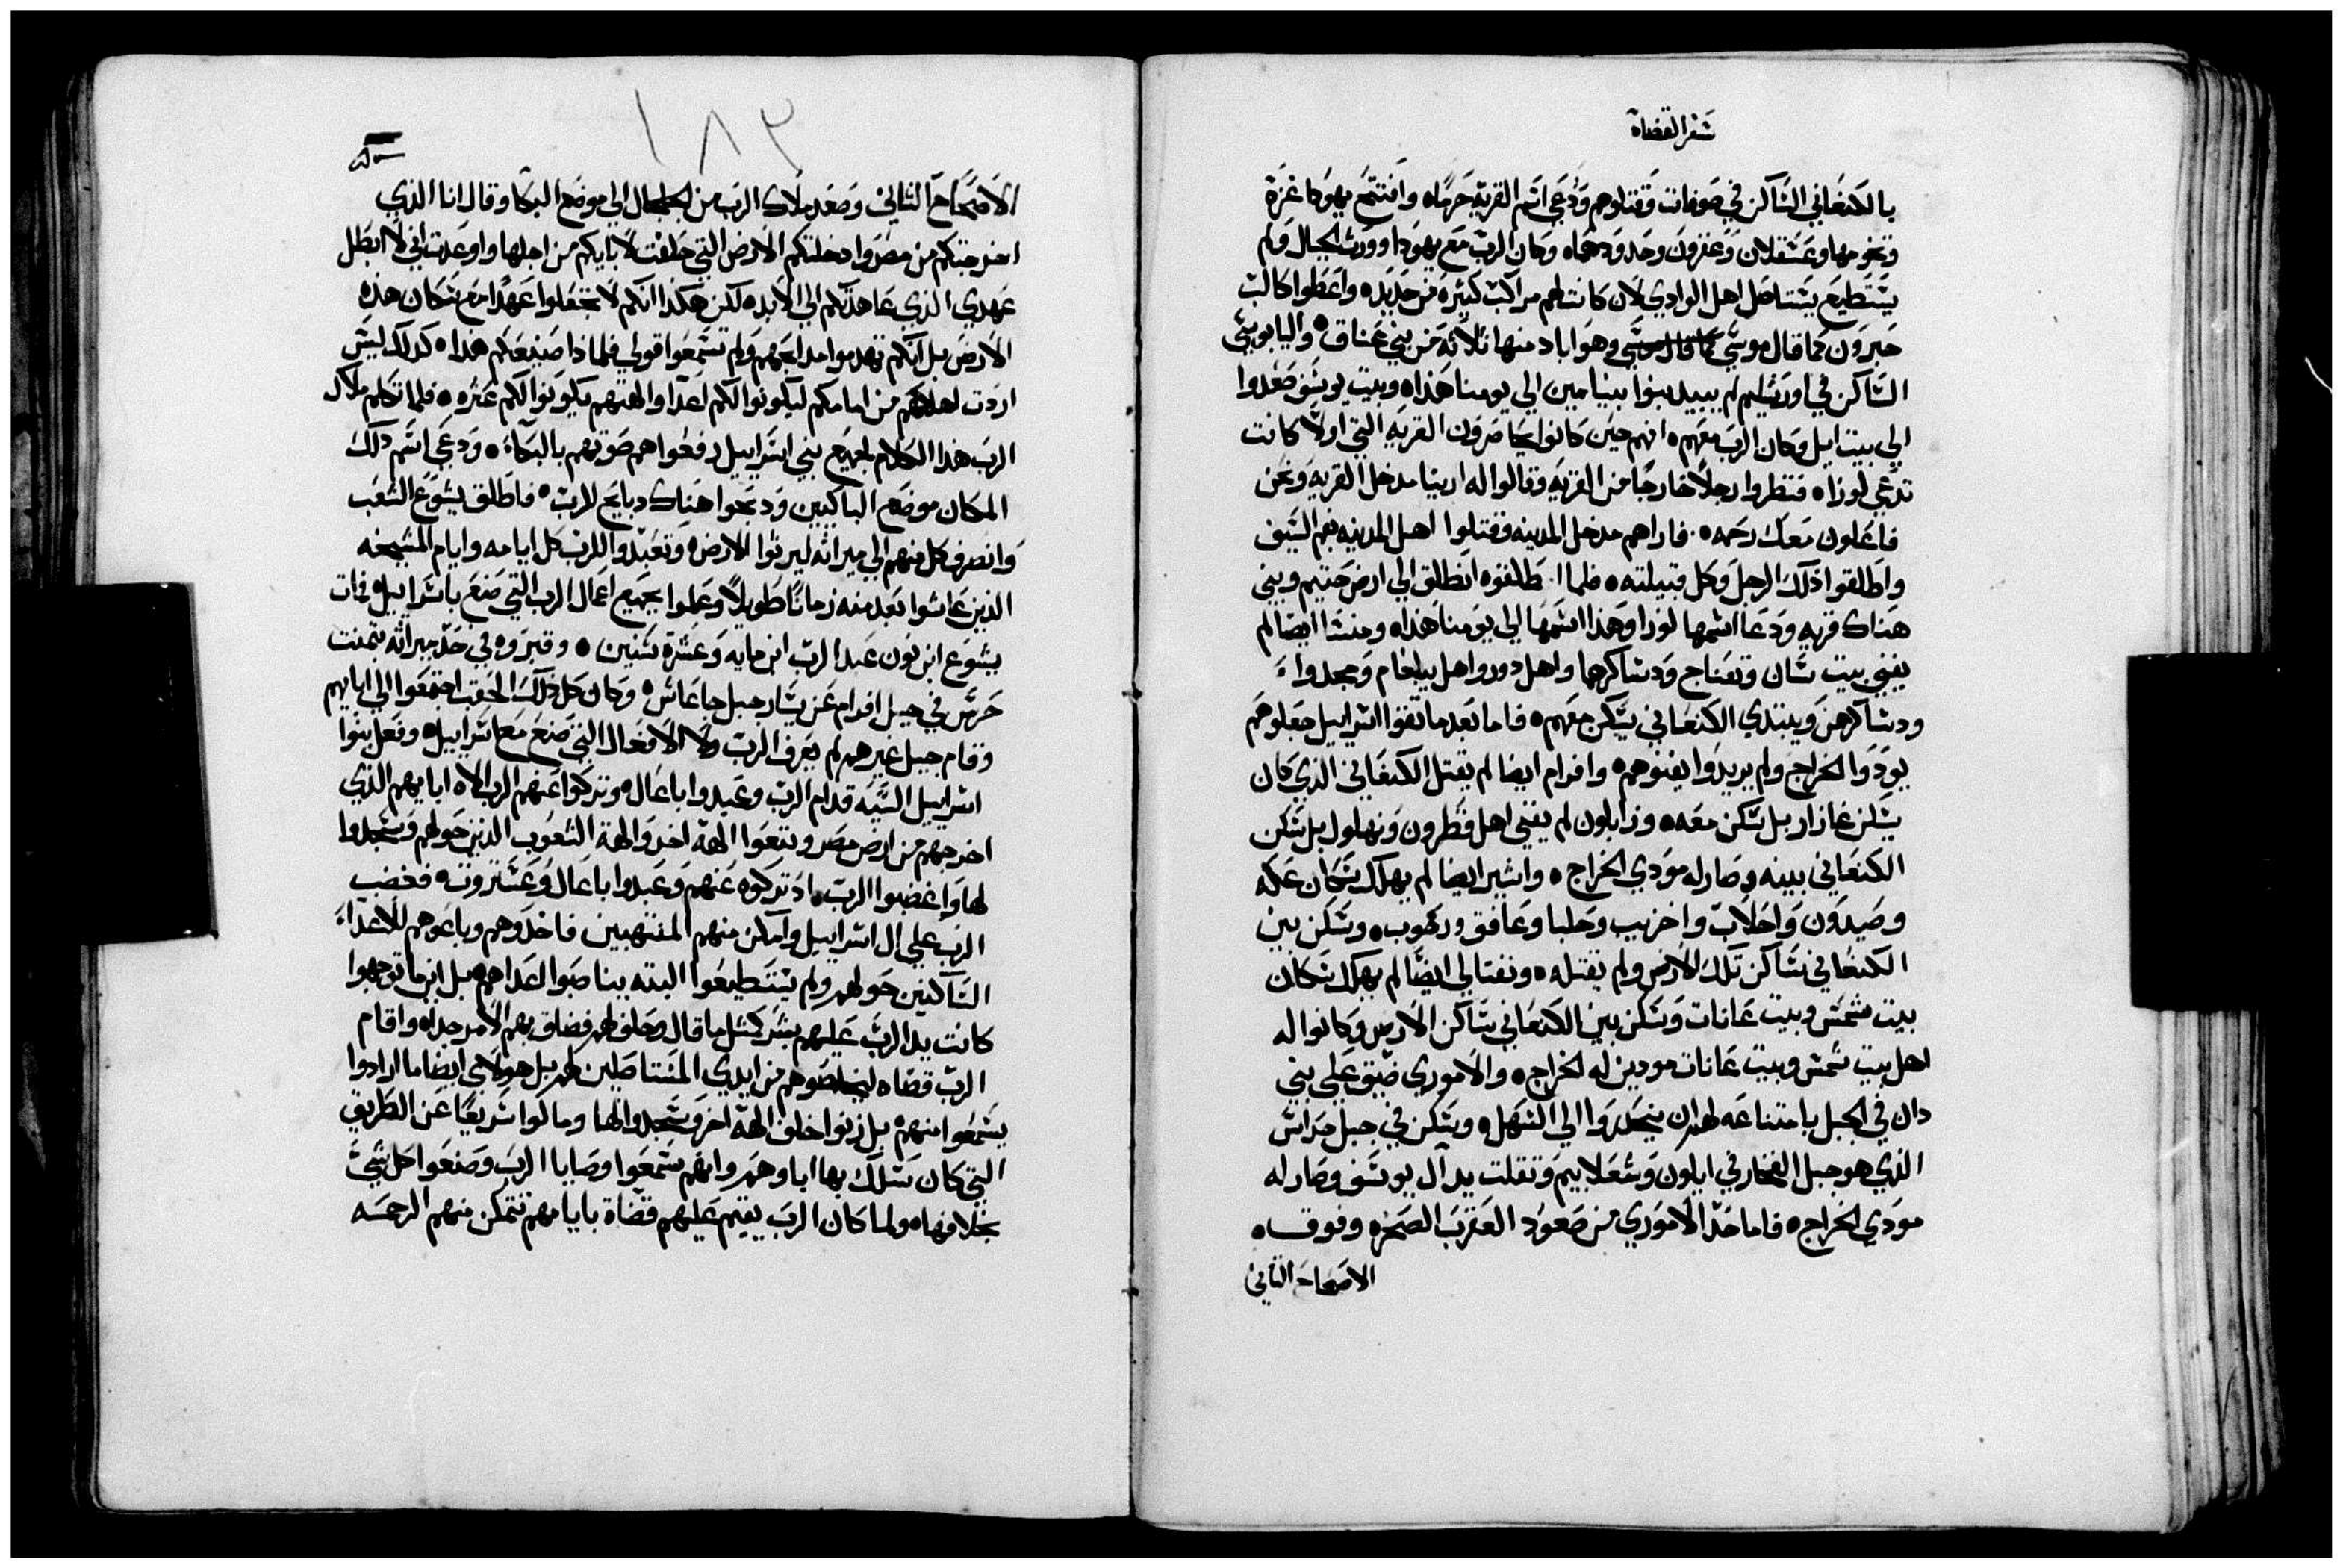 سفر القضاة
بالكنعاني الساكن في صوفات وقتلوهم ودعي اسم القرية حرماه وافتتح يهودا غزة
وتخومها وعسقلان وعقرون وحدودهماه وكان الرب مع يهودا وورث الجبال ولم
يستطيع يستاصل اهل الوادي لان كانت لهم مراكب كثيرة من حديده واعطوا كالب
حبرون كما قال موسي وهو اباد منها ثلاثة من بني عناق ه واليابوسي
الساكن في اورشليم لم يبيده بنوا بنيامين الي يومنا هذا ه وبيت يوسف صعدوا
الي بيت ايل وكان الرب معهم ه انهم حين كانوا يحاصرون القرية التي اولا كانت
تدعي لوزا ه فنظروا رجلا خارجا من القرية وقالوا له ارينا مدخل القرية ونحن
فاعلون معك رحمه ه فاراهم مدخل المدينه وقتلوا اهل المدينه بفم السيف
واطلقوا ذلك الرجل وكل قبيلته ه فلما اطلقوه انطلق الي ارض حتيم وبني
هناك قريه ودعا اسمها لوزا وهذا اسمها الي يومنا هذا ه ومنشا ايضا لم
يفني بيت سان وتعناح ودساكرهما واهل دور واهل يبلعام ومجدوا
ودساكرهن ويبتدي الكنعاني يسكن معهم ه فاما بعد ما تقوا اسراييل جعلوهم
يودوا الخراج ولم يريدوا يفنوهم ه وافرام ايضا لم يقتل الكنعاني الذي كان
يسكن غازار بل سكن معه ه وزابلون لم يفني اهل قطرون ونهلول بل سكن
الكنعاني بينه وصار له مودي الخراج ه واشير ايضا لم يهلك سكان عكه
وصيدون واحلاب واخزيب وحلبا وعافق ورحوب ه وسكن بين
الكنعاني ساكن تلك الارض ولم يقتله ه ونفتالي ايضا لم يهلك سكان
بيت شمس وبيت عانات وسكن بين الكنعاني ساكن الارض وكانوا له
اهل بيت شمس وبيت عانات مودين له الخراج ه والاموري ضيق علي بني
دان في الجبل بامتناعه لهم ان ينحدروا الي السهل ه وسكن في جبل حراس
الذي هو جبل الفخار في ايلون وشعلابيم وثقلت يد ال يوسف وصار له
مودي الخراج ه فاما حد الاموري من صعود العقرب الصخره وفوق ه
الاصحاح الثاني
١٨٢
الاصحاح الثاني وصعد ملاك الرب من الجلجال الي موضع البكا وقال انا الذي
اخرجتكم من مصر وادخلتكم الارض التي حلفت لابايكم من اجلها واوعدت اني لا ابطل
عهدي الذي عاهدتكم الي الابد ه لكن هكذا انكم لا تجعلوا عهدا مع سكان هذه
الارض بل انكم تهدموا مدابحهم ولم تسمعوا قولي فلماذا صنيعكم هذا ه كذلك ليس
اردت اهلاكهم من امامكم ليكونوا لكم اعدا والهتهم يكونوا لكم عثره ه فلما تكلم ملاك
الرب هذا الكلام لجميع بني اسراييل رفعوا هم صوتهم بالبكاء ه ودعي اسم ذلك
المكان موضع الباكيين ودبحوا هناك دبايح للرب ه فاطلق يشوع الشعب
وانصرف كل منهم الي ميراثه ليرثوا الارض ه وتعبدوا للرب كل ايامه وايام المشيخه
الذين عاشوا بعد منه زمانا طويلا وعلموا بجميع اعمال الرب التي صنع باسراييل ه فمات
يشوع ابن نون عبد الرب ابن مايه وعشرة سنين ه وقبروه في حد ميراثه بتمنت
حرس في جبل افرام عن يسار جبل جاعاش ه وكان كل ذلك الحقب اجتمعوا الي ابايهم
وقام جيل غيرهم لم يعرف الرب ولا الافعال التي صنع مع اسراييل ه وفعل بنوا
اسراييل السيه قدام الرب وعبدوا باعال ه وتركوا عنهم الرب الاه ابايهم الذي
اخرجهم من ارض مصر وتبعوا الهة اخر والهة الشعوب الذين حولهم وسجدوا
لها واغضبوا الرب ه اد تركوه عنهم وعبدوا باعال وعشتروت ه فغضب
الرب علي ال اسراييل وامكن منهم المنتهبين فاخدوهم وباعوهم للاعداء
الساكنين حولهم ولم يستطيعوا البته يناصبوا اعداهم بل اينما توجهوا
كانت يد الرب عليهم بشر كمثل ما قال وحلف لهم فضاق بهم الامر جدا ه واقام
الرب قضاه ليخلصوهم من ايدي المستاصلين لهم بل هولاي ايضا ما ارادوا
يسمعوا منهم بل زنوا خلف الهة اخر وسجدوا لها ومالوا سريعا عن الطريق
التي كان سلك بها اباوهم وانهم سمعوا وصايا الرب وصنعوا كل شي
بخلافها ه ولما كان الرب يقيم عليهم قضاة بايامهم تتمكن منهم الرحمه